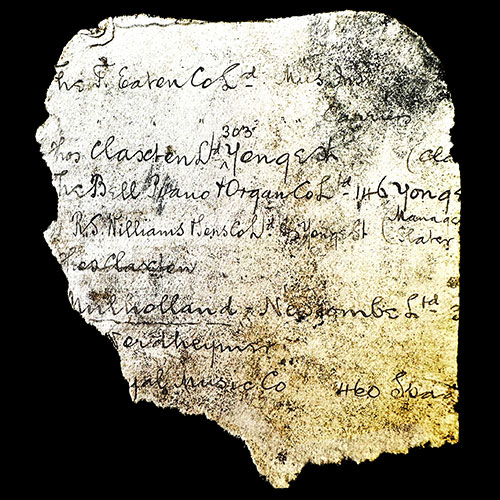 The T. Eaton Co Ld Mus Inst
" " " Barries
hos Claxten Ltd 303 Yonge St (Cla
The Bell Piano & Organ Co Ld 146 Yonge
R.S. Williams & Sons Co Ld Yonge St (Manager Slater
hos Claxten
Mulholland - Newcombe Ltd
Nordheymer
yal Music Co 460 Spa